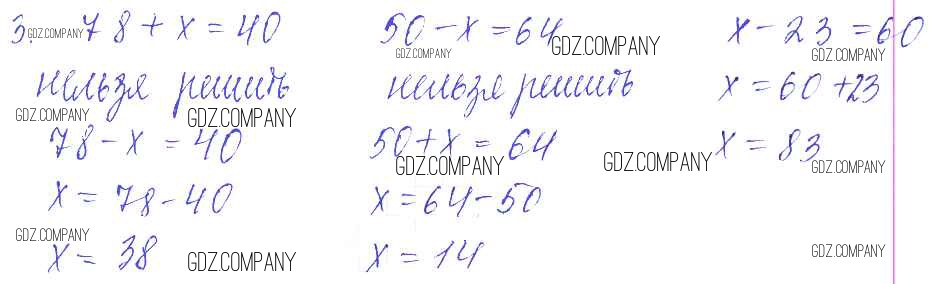 3. 78 + x = 40
нельзя решить
78 - x = 40
x = 78 - 40
x = 38
50 - x = 64
нельзя решить
50 + x = 64
x = 64 - 50
x = 14
x - 23 = 60
x = 60 + 23
x = 83
GDZ.COMPANY
GDZ.COMPANY
GDZ.COMPANY
GDZ.COMPANY
GDZ.COMPANY
GDZ.COMPANY
GDZ.COMPANY
GDZ.COMPANY
GDZ.COMPANY
GDZ.COMPANY
GDZ.COMPANY
GDZ.COMPANY
GDZ.COMPANY